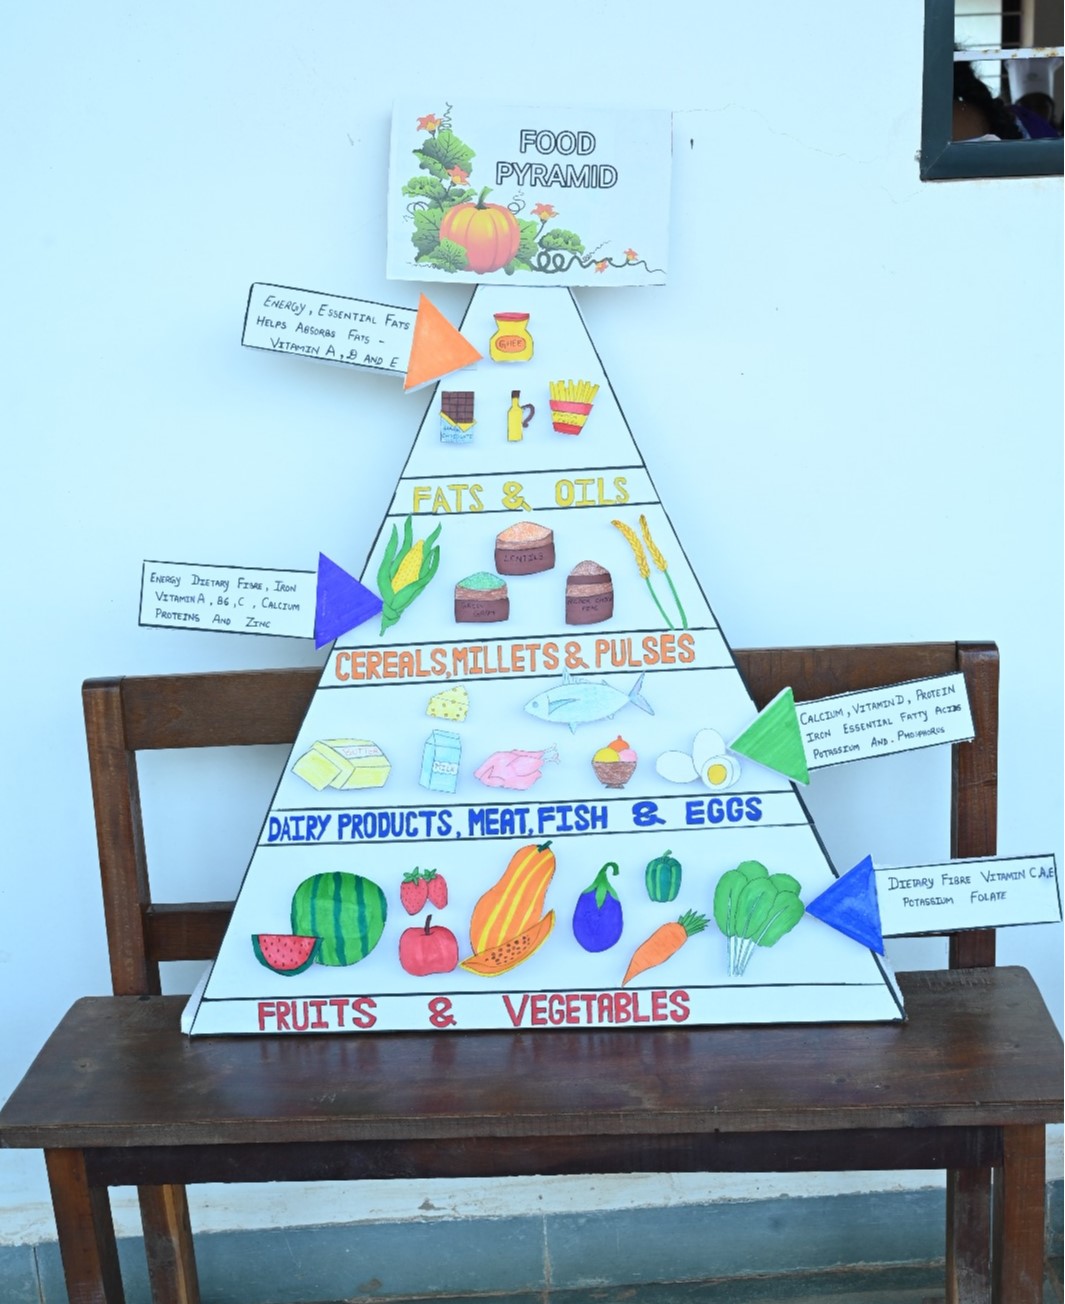 FOOD
PYRAMID
ENERGY, ESSENTIAL FATS
HELPS ABSORBS FATS -
VITAMIN A, B AND E
GHEE
FATS & OILS
LENTILS
ENERGY DIETARY FIBRE, IRON
VITAMIN A, B6, C, CALCIUM
PROTEINS AND ZINC
CEREALS,MILLETS & PULSES
CALCIUM, VITAMIN D, PROTEIN
IRON ESSENTIAL FATTY ACIDS
POTASSIUM AND. PHOSPHORUS
DAIRY PRODUCTS, MEAT,FISH & EGGS
DIETARY FIBRE VITAMIN C,A,E
POTASSIUM FOLATE
FRUITS & VEGETABLES